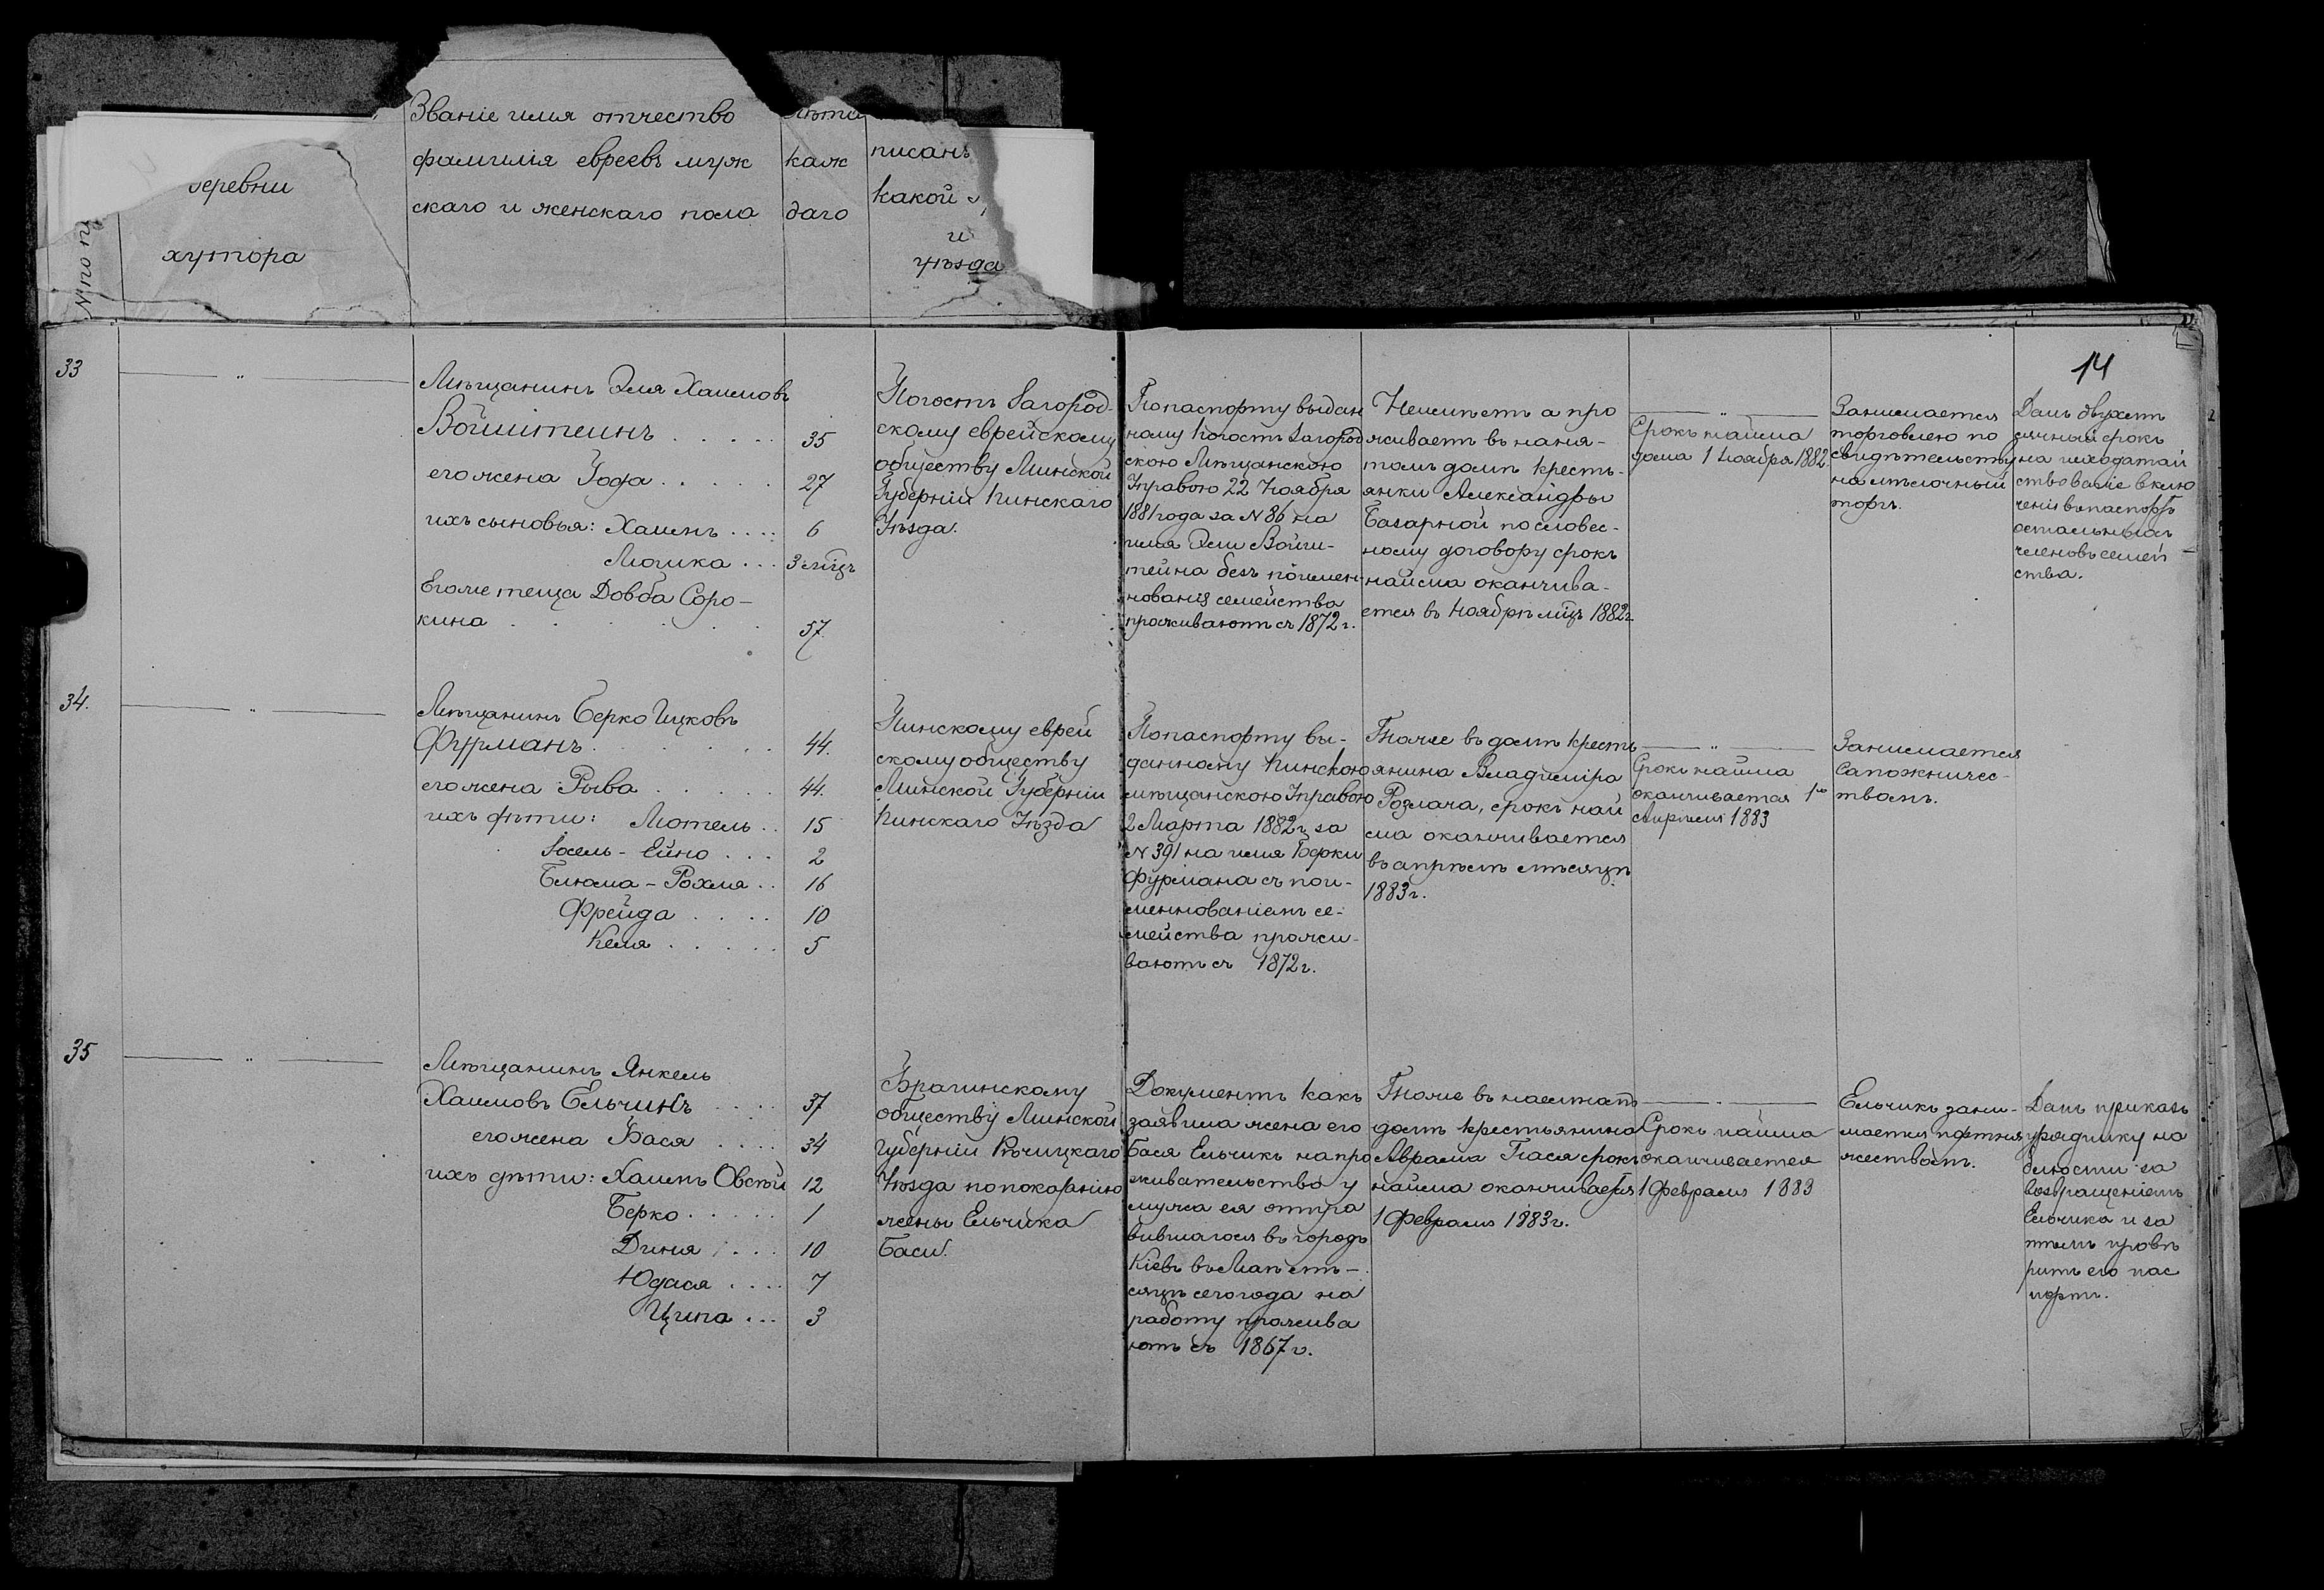 № по п
деревни
хутора
Званіе имя отчество
фамилія евреевъ муж
скаго и женскаго пола
Лѣта
каж
даго
писанъ
какой
и
уѣзда
14
33
"
Мѣщанинъ Эля Хаимовъ
Войштейнъ . . . . . 35
его жена Года . . . . . 27
ихъ сыновья: Хаимъ . . . : 6
Мошка . . . 3 мѣц
Егоже теща Довба Соро-
кина . . . . . . 57
Погостъ Загород-
скому еврейскому
обществу Минской
Губерніи Пинскаго
Уѣзда.
По паспорту выдан
ному Погостъ Загород
скою Мѣщанскою
Управою 22 Ноября
1881 года за N 86 на
имя Эли Войш-
тейна безъ поимен-
нованія семейства
проживаютъ съ 1872 г.
Неимѣетъ а про
живаетъ въ наня-
томъ домѣ кресть-
янки Александры
Базарной по словес-
ному договору срокъ
найма оканчива-
ется въ Ноябрѣ мѣц 1882 г.
"
Срокъ найма
дома 1 Ноября 1882.
Занимается
торговлею по
свидѣтельству
на мѣлочный
торгъ.
Данъ двухмѣ
сячный срокъ
на исходатай
ствованіе включ
ченія въ паспортъ
остальныхъ
членовъ семей-
ства.
34.
"
Мѣщанинъ Берко Ицковъ
Фурманъ . . . . . . . 44.
его жена Рыва . . . . . 44.
ихъ дѣти: Мотель . . 15
Іосель-Ейно . . . 2
Блюма-Рохля . . 16
Фрейда . . . . 10
Келя . . . . . 5
Пинскому еврей
скому обществу
Минской Губерніи
Пинскаго Уѣзда
По паспорту вы-
данному Пинскою
мѣщанскою Управою
2 Марта 1882 г. за
N 391 на имя Берки
Фурмана съ пои-
меннованіемъ се-
мейства прожи-
ваютъ съ 1872 г.
Тоже въ домѣ кресть
янина Владиміра
Розлача, срокъ най
ма оканчивается
въ апрѣлѣ мѣсяцѣ
1883 г.
"
Срокъ найма
оканчивается 1го
Апрѣля 1883
Занимается
Сапожничес-
твомъ.
35
"
Мѣщанинъ Янкель
Хаимовъ Ельчикъ . . . . 37
его жена Бася . . . . 34
ихъ дѣти: Хаимъ Овсѣй 12
Берко . . . . . 1
Диня . . . . 10
Юдася . . . . 7
Ципа . . . 3
Брагинскому
обществу Минской
Губерніи Рѣчицкаго
Уѣзда по показанію
жены Ельчика
Баси.
Документъ какъ
заявила жена его
Бася Ельчикъ на про
живательство у
мужа ея отпра
вившагося въ городъ
Кіевъ въ Маѣ мѣ-
сяцѣ сего года на
работу прожива
ютъ съ 1867 г.
Тоже въ наемномъ
домѣ крестьянина
Аврама Гася срокъ
найма оканчивается
1 Февраля 1883 г.
Срокъ найма
оканчивается
1 Февраля 1883
Ельчикъ зани-
мается портня
жествомъ.
Данъ приказъ
уряднику на
блюсти за
возвращеніемъ
Ельчика и за
тѣмъ провѣ
рить его пас
портъ.